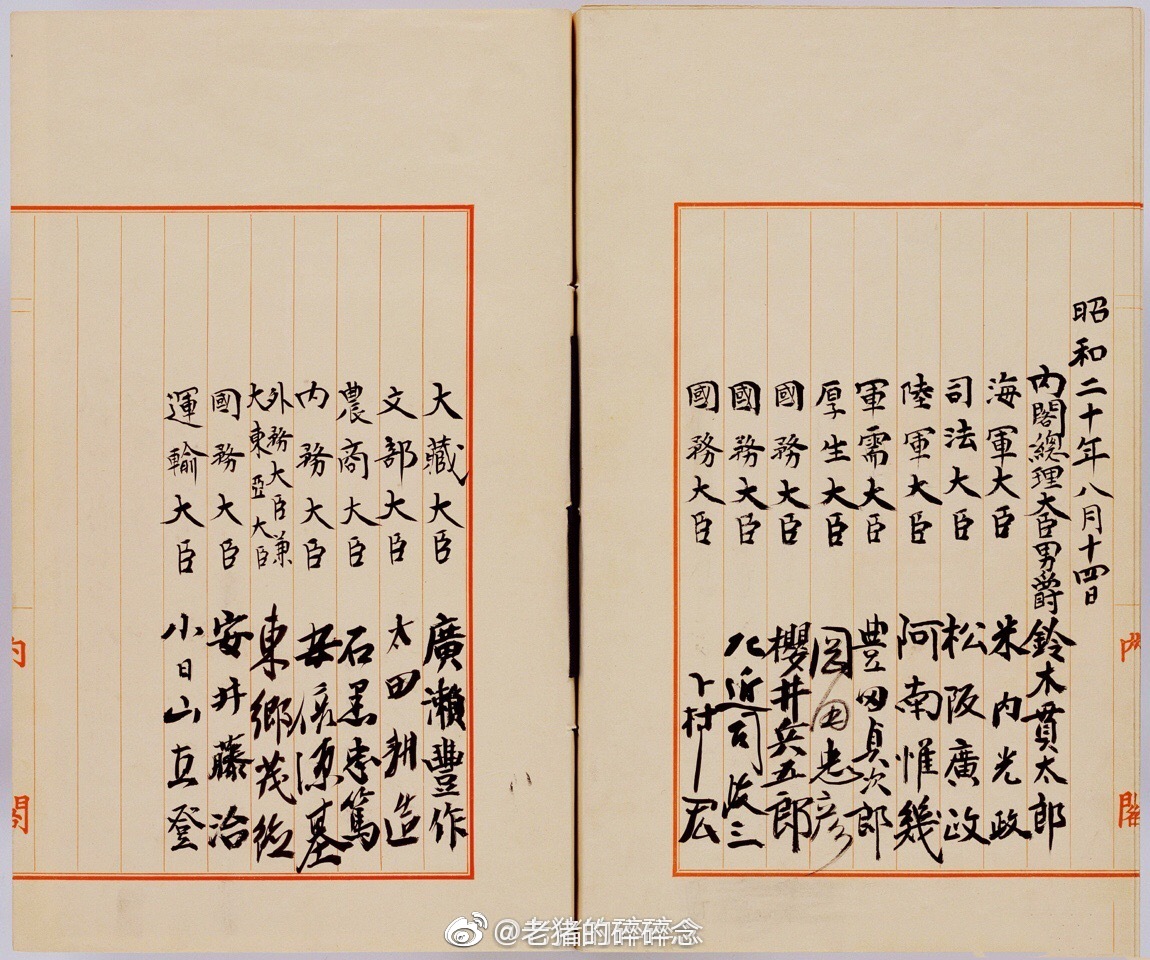 昭和二十年八月十四日
内閣總理大臣男爵 鈴木貫太郎
海軍大臣 米内光政
司法大臣 松阪廣政
陸軍大臣 阿南惟幾
軍需大臣 豊田貞次郎
厚生大臣 岡田忠彦
國務大臣 櫻井兵五郎
國務大臣 左近司政三
國務大臣 下村宏
大藏大臣 廣瀬豐作
文部大臣 太田耕造
農商大臣 石黒忠篤
内務大臣 安倍源基
外務大臣兼
大東亞大臣 東郷茂徳
國務大臣 安井藤治
運輸大臣 小日山直登
内閣
内閣
@老猪的碎碎念